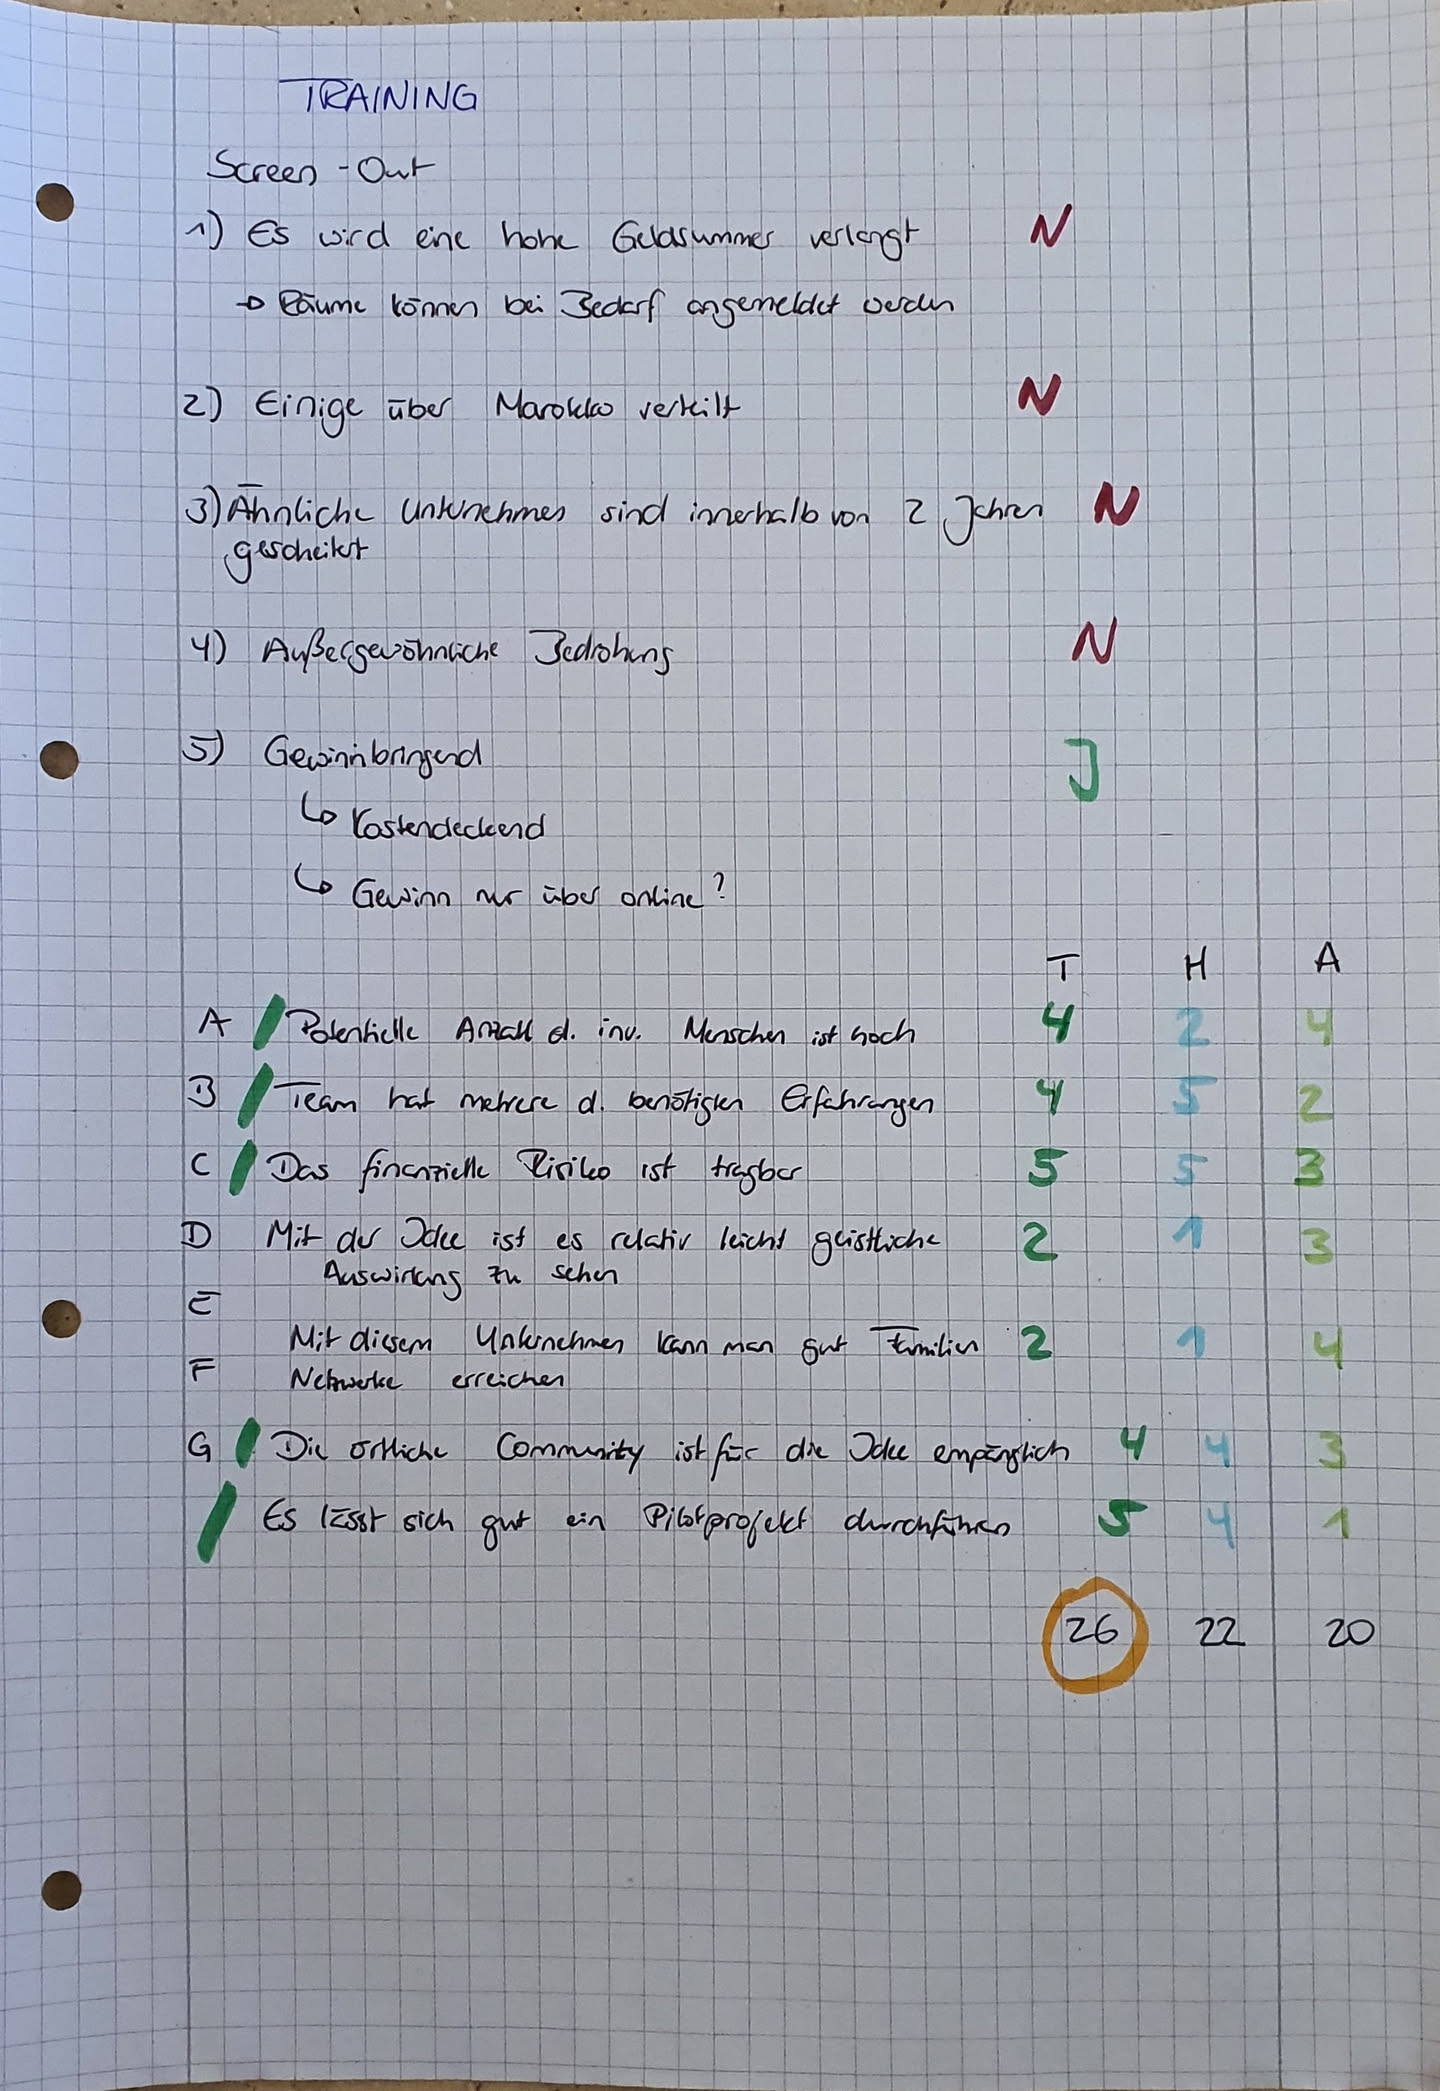 TRAINING
Screen - Out
1) Es wird eine hohe Geldsummer verlangt N
→ Räume können bei Bedarf angemeldet werden
2) Einige über Marokko verteilt N
3) Ähnliche Unternehmen sind innerhalb von 2 Jahren N
gescheitert
4) Außergewöhnliche Bedrohung N
5) Gewinnbringend J
↳ Kostendeckend
↳ Gewinn nur über online?
T H A
A Potentielle Anzahl d. inv. Menschen ist hoch 4 2 4
B Team hat mehrere d. benötigten Erfahrungen 4 5 2
C Das finanzielle Risiko ist tragbar 5 5 3
D Mit der Idee ist es relativ leicht geistliche 2 1 3
Auswirkung zu sehen
E
Mit diesem Unternehmen kann man gut Familien 2 1 4
F Netzwerke erreichen
G Die örtliche Community ist für die Idee empänglich 4 4 3
Es lässt sich gut ein Pilotprojekt durchführen 5 4 1
26 22 20